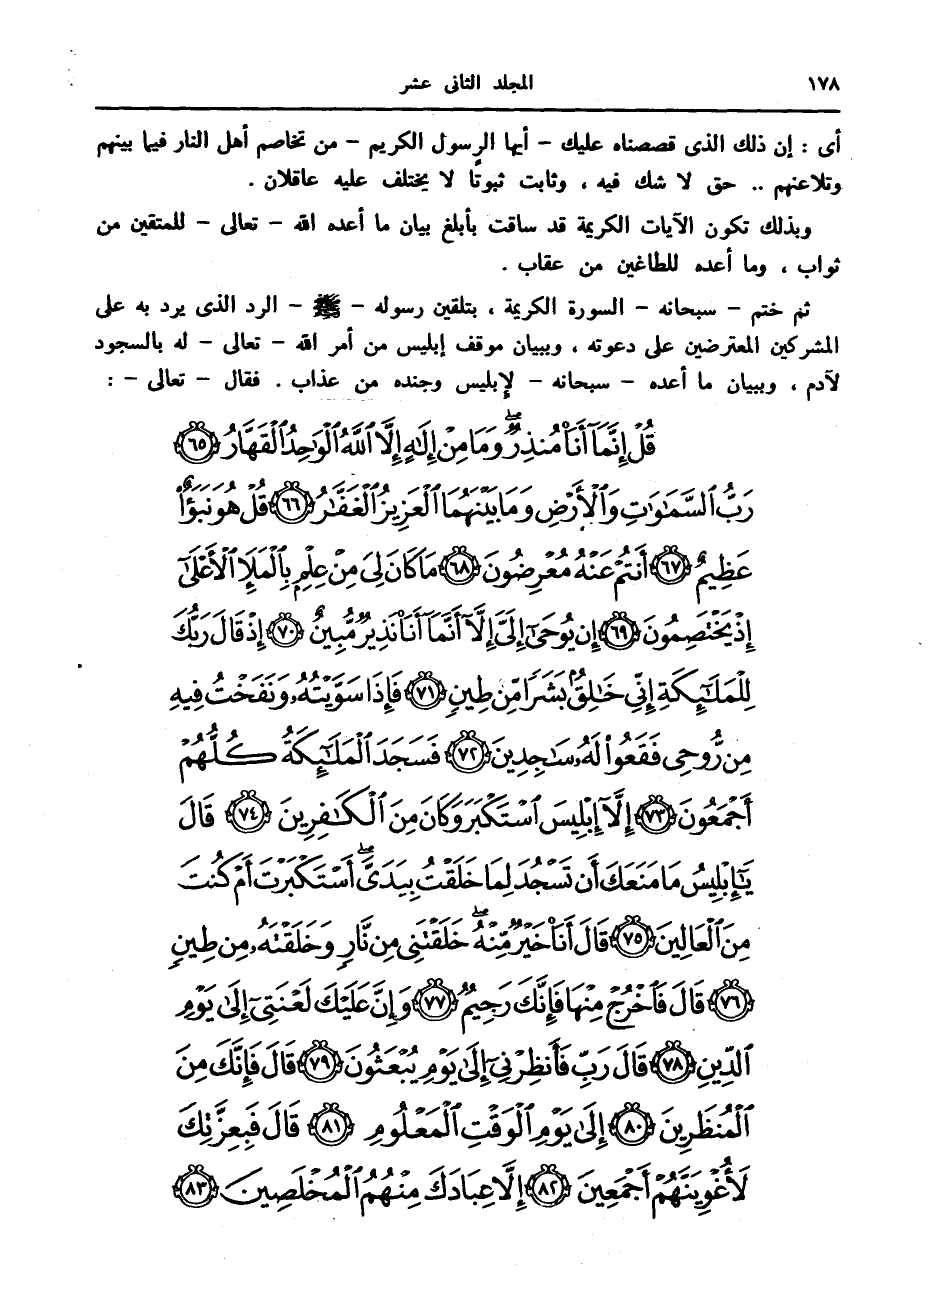 ١٧٨ المجلد الثانى عشر
أى : إن ذلك الذى قصصناه عليك – أيها الرسول الكريم – من تخاصم أهل النار فيما بينهم
وتلاعنهم .. حق لا شك فيه ، وثابت ثبوتًا لا يختلف عليه عاقلان .
وبذلك تكون الآيات الكريمة قد ساقت بأبلغ بيان ما أعده الله – تعالى – للمتقين من
ثواب ، وما أعده للطاغين من عقاب .
ثم ختم – سبحانه – السورة الكريمة ، بتلقين رسوله – ﷺ – الرد الذى يرد به على
المشركين المعترضين على دعوته ، وببيان موقف إبليس من أمر الله – تعالى – له بالسجود
لآدم ، وببيان ما أعده – سبحانه – لإبليس وجنده من عذاب . فقال – تعالى – :
قُلْ إِنَّمَآ أَنَا۠ مُنذِرٌۖ وَمَا مِنْ إِلَٰهٍ إِلَّا ٱللَّهُ ٱلْوَٰحِدُ ٱلْقَهَّارُ ٦٥
رَبُّ ٱلسَّمَٰوَٰتِ وَٱلْأَرْضِ وَمَا بَيْنَهُمَا ٱلْعَزِيزُ ٱلْغَفَّٰرُ ٦٦ قُلْ هُوَ نَبَؤٌا۟
عَظِيمٌ ٦٧ أَنتُمْ عَنْهُ مُعْرِضُونَ ٦٨ مَا كَانَ لِىَ مِنْ عِلْمٍۭ بِٱلْمَلَإِ ٱلْأَعْلَىٰٓ
إِذْ يَخْتَصِمُونَ ٦٩ إِن يُوحَىٰٓ إِلَىَّ إِلَّآ أَنَّمَآ أَنَا۠ نَذِيرٌ مُّبِينٌ ٧٠ إِذْ قَالَ رَبُّكَ
لِلْمَلَٰٓئِكَةِ إِنِّى خَٰلِقٌۢ بَشَرًا مِّن طِينٍ ٧١ فَإِذَا سَوَّيْتُهُۥ وَنَفَخْتُ فِيهِ
مِن رُّوحِى فَقَعُوا۟ لَهُۥ سَٰجِدِينَ ٧٢ فَسَجَدَ ٱلْمَلَٰٓئِكَةُ كُلُّهُمْ
أَجْمَعُونَ ٧٣ إِلَّآ إِبْلِيسَ ٱسْتَكْبَرَ وَكَانَ مِنَ ٱلْكَٰفِرِينَ ٧٤ قَالَ
يَٰٓإِبْلِيسُ مَا مَنَعَكَ أَن تَسْجُدَ لِمَا خَلَقْتُ بِيَدَىَّۖ أَسْتَكْبَرْتَ أَمْ كُنتَ
مِنَ ٱلْعَالِينَ ٧٥ قَالَ أَنَا۠ خَيْرٌ مِّنْهُۖ خَلَقْتَنِى مِن نَّارٍ وَخَلَقْتَهُۥ مِن طِينٍ
٧٦ قَالَ فَٱخْرُجْ مِنْهَا فَإِنَّكَ رَجِيمٌ ٧٧ وَإِنَّ عَلَيْكَ لَعْنَتِىٓ إِلَىٰ يَوْمِ
ٱلدِّينِ ٧٨ قَالَ رَبِّ فَأَنظِرْنِىٓ إِلَىٰ يَوْمِ يُبْعَثُونَ ٧٩ قَالَ فَإِنَّكَ مِنَ
ٱلْمُنظَرِينَ ٨٠ إِلَىٰ يَوْمِ ٱلْوَقْتِ ٱلْمَعْلُومِ ٨١ قَالَ فَبِعِزَّتِكَ
لَأُغْوِيَنَّهُمْ أَجْمَعِينَ ٨٢ إِلَّا عِبَادَكَ مِنْهُمُ ٱلْمُخْلَصِينَ ٨٣